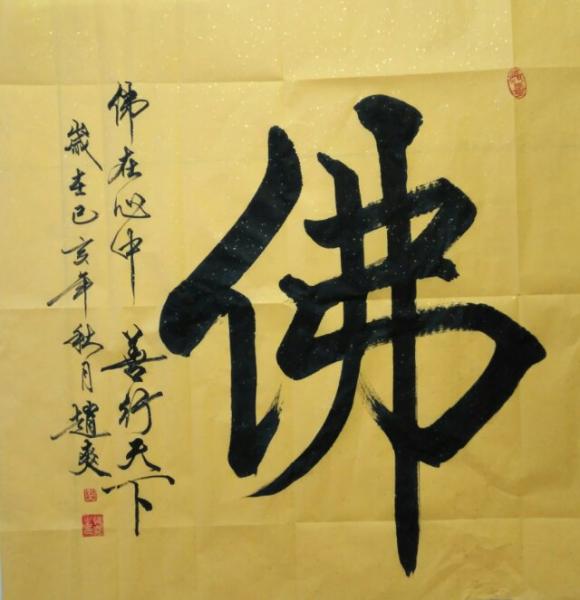 佛
佛在心中 善行天下
歲在己亥年秋月 趙爽